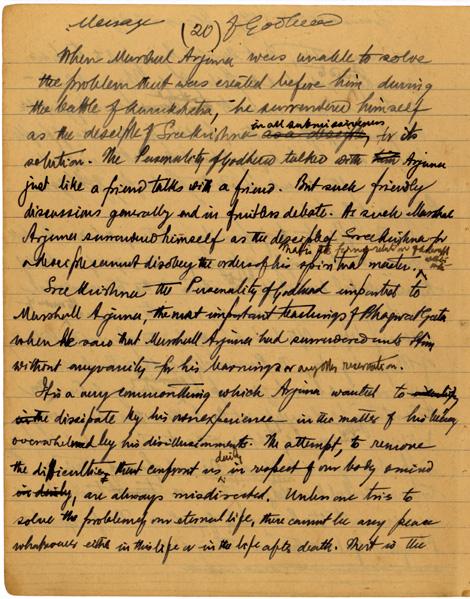 Message (20) of Godhead
When Marshal Arjuna was unable to solve
the problem that was created before him during
the battle of Kurukshetra, he surrendered himself
as the desciple of Sree Krishna in all submissiveness as a desciple, for its
solution. The Personality of Godhead talked with Arjuna
just like a friend talks with a friend. But such friendly
discussions generally end in fruitless debate. As such Marshal
Arjuna surrendered himself as the desciple of Sree Krishna for
a desciple cannot disobey the orders of his spiritual master. That is the relation of
Sree Krishna the Personality of Godhead imparted to
Marshall Arjuna, the most important teachings of Bhagwat Geeta
when He saw that Marshall Arjuna had surrendered unto Him
without any vanity for his learnings or any other reservation.
It is a very common thing which Arjuna wanted to
in the discipate by his own experience in the matter of his being
overwhelmed by his disillusionments. The attempt, to remove
the difficulties that confront us daily in respect of our body & mind
in daily, are always misdirected. Unless one tries to
solve the problem of our eternal life, there cannot be any peace
whatsoever either in this life or in the life after death. That is the